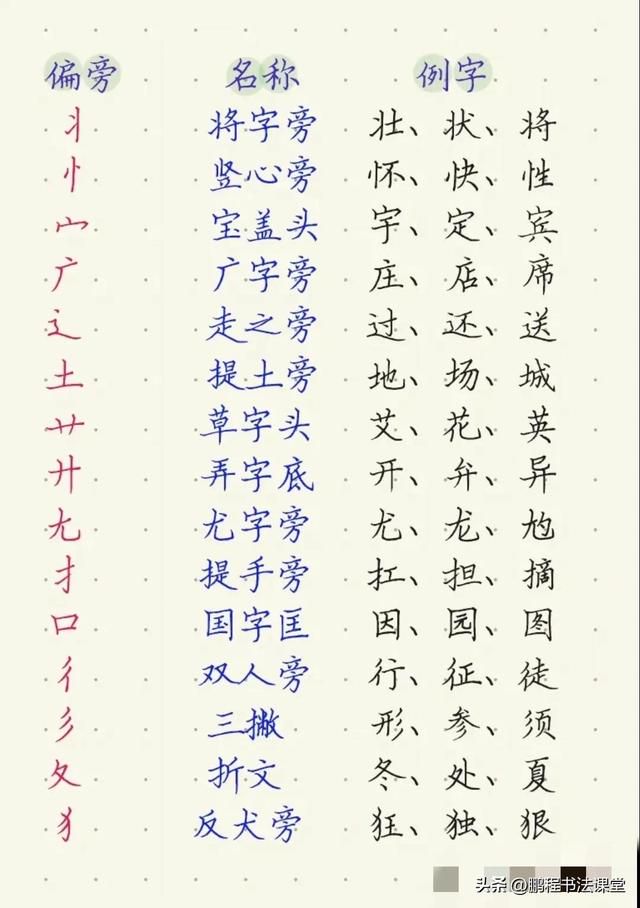 偏旁 名称 例字
丬 将字旁 壮、状、将
忄 竖心旁 怀、快、性
宀 宝盖头 宇、定、宾
广 广字旁 庄、店、席
辶 走之旁 过、还、送
土 提土旁 地、场、城
艹 草字头 艾、花、英
廾 弄字底 开、弁、异
尢 尤字旁 尤、龙、尥
扌 提手旁 扛、担、摘
口 国字匡 因、园、图
彳 双人旁 行、征、徒
彡 三撇 形、参、须
夂 折文 冬、处、夏
犭 反犬旁 狂、独、狠
头条 @鹏程书法课堂